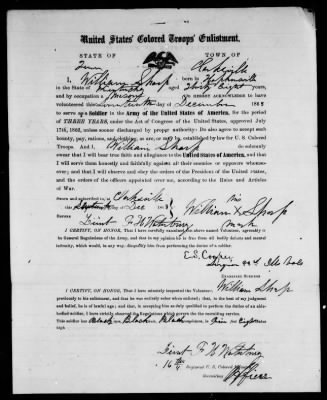 United States' Colored Troops' Enlistment.
STATE OF TOWN OF
Tenn Clarksville
I, William Sharp born in Hopkinsville
in the State of Kentucky aged Thirty Eight years,
and by occupation a DO HEREBY ACKNOWLEDGE to have
volunteered this day of December 1863
to serve as a Soldier in the Army of the United States of America, for the period
of THREE YEARS, under the Act of Congress of the United States, approved July
17th, 1862, unless sooner discharged by proper authority: Do also agree to accept such
bounty, pay, rations, and clothing, as are, or may be, established by law for U. S. Colored
Troops. And I, William Sharp do solemnly
swear that I will bear true faith and allegiance to the United States of America, and that
I will serve them honestly and faithfully against all their enemies or opposers whomso-
ever; and that I will observe and obey the orders of the President of the United States,
and the orders of the officers appointed over me, according to the Rules and Articles
of War.
Sworn and subscribed to, at Clarksville
this day of Dec 186 his
BEFORE William X Sharp
Lieut F H mark
I CERTIFY, ON HONOR, That I have carefully examined the above named Volunteer, agreeably
to the General Regulations of the Army, and that in my opinion he is free from all bodily defects and mental
infirmity, which would, in any way, disqualify him from performing the duties of a soldier.
E. S. Cooper
Surgeon
EXAMINING SURGEON
William Sharp
I CERTIFY, ON HONOR, That I have minutely inspected the Volunteer,
previously to his enlistment, and that he was entirely sober when enlisted; that, to the best of my judgment
and belief, he is of lawful age; and that, in accepting him as duly qualified to perform the duties of an able-
bodied soldier, I have strictly observed the Regulations which govern the recruiting service.
This soldier has Black eyes, Black hair, Black complexion, is Five feet Eight inches
high.
Lieut F H
16th Regiment U. S. Colored
Recruiting Officer